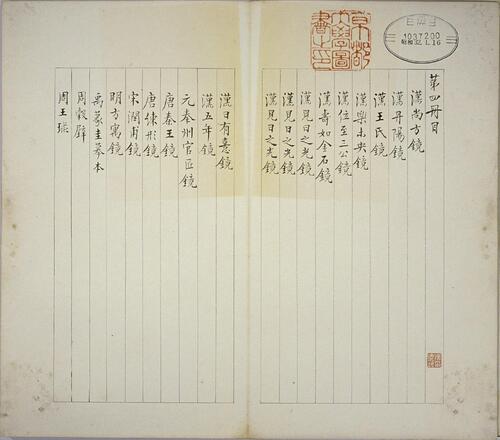 第四冊目
漢尚方鏡
漢丹陽鏡
漢王氏鏡
漢樂未央鏡
漢位至三公鏡
漢壽如金石鏡
漢見日之光鏡
漢見日之光鏡
漢見日之光鏡
漢日有憙鏡
漢五年鏡
元秦州官匠鏡
唐秦王鏡
唐鏡
宋潤甫鏡
明方寓鏡
禹篆圭摹本
周穀璧
周王
京都
大學圖
書之印
1037200
昭和32.1.16